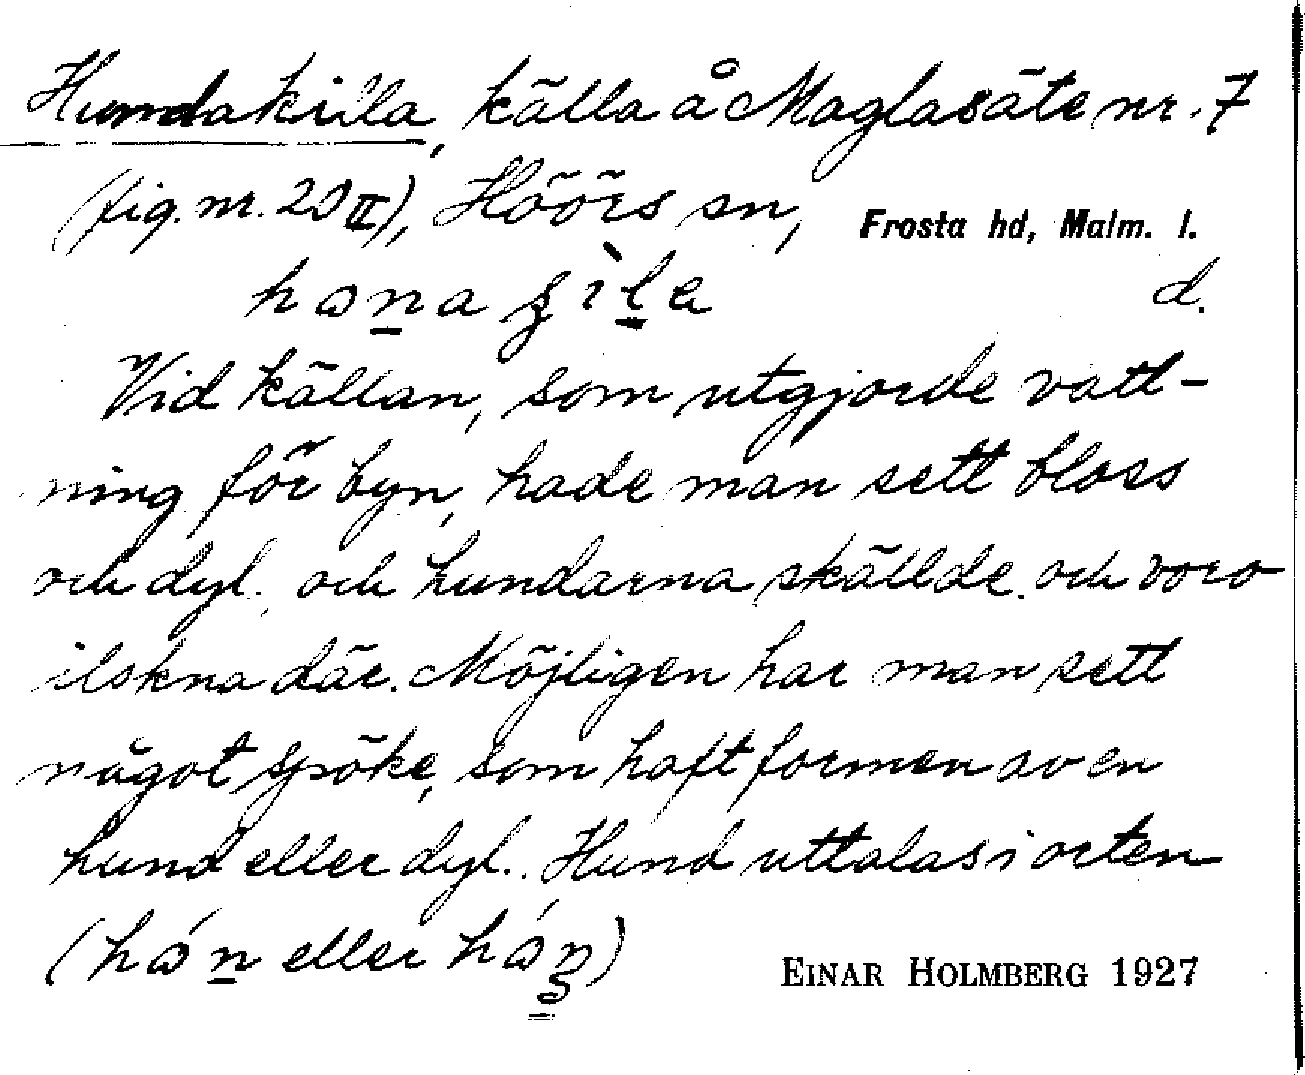 Hundakilla, källa å Maglasäte nr. 7
(fig. nr. 20 II), Höörs sn, Frosta hd, Malm. l.
d.
Vid källan, som utgjorde vatt-
ning för byn, hade man sett bloss
och dyl. och hundarna skällde och voro
ilskna där. Möjligen har man sett
något spöke, som haft formen av en
hund eller dyl.. Hund uttalas i orten
eller
EINAR HOLMBERG 1927